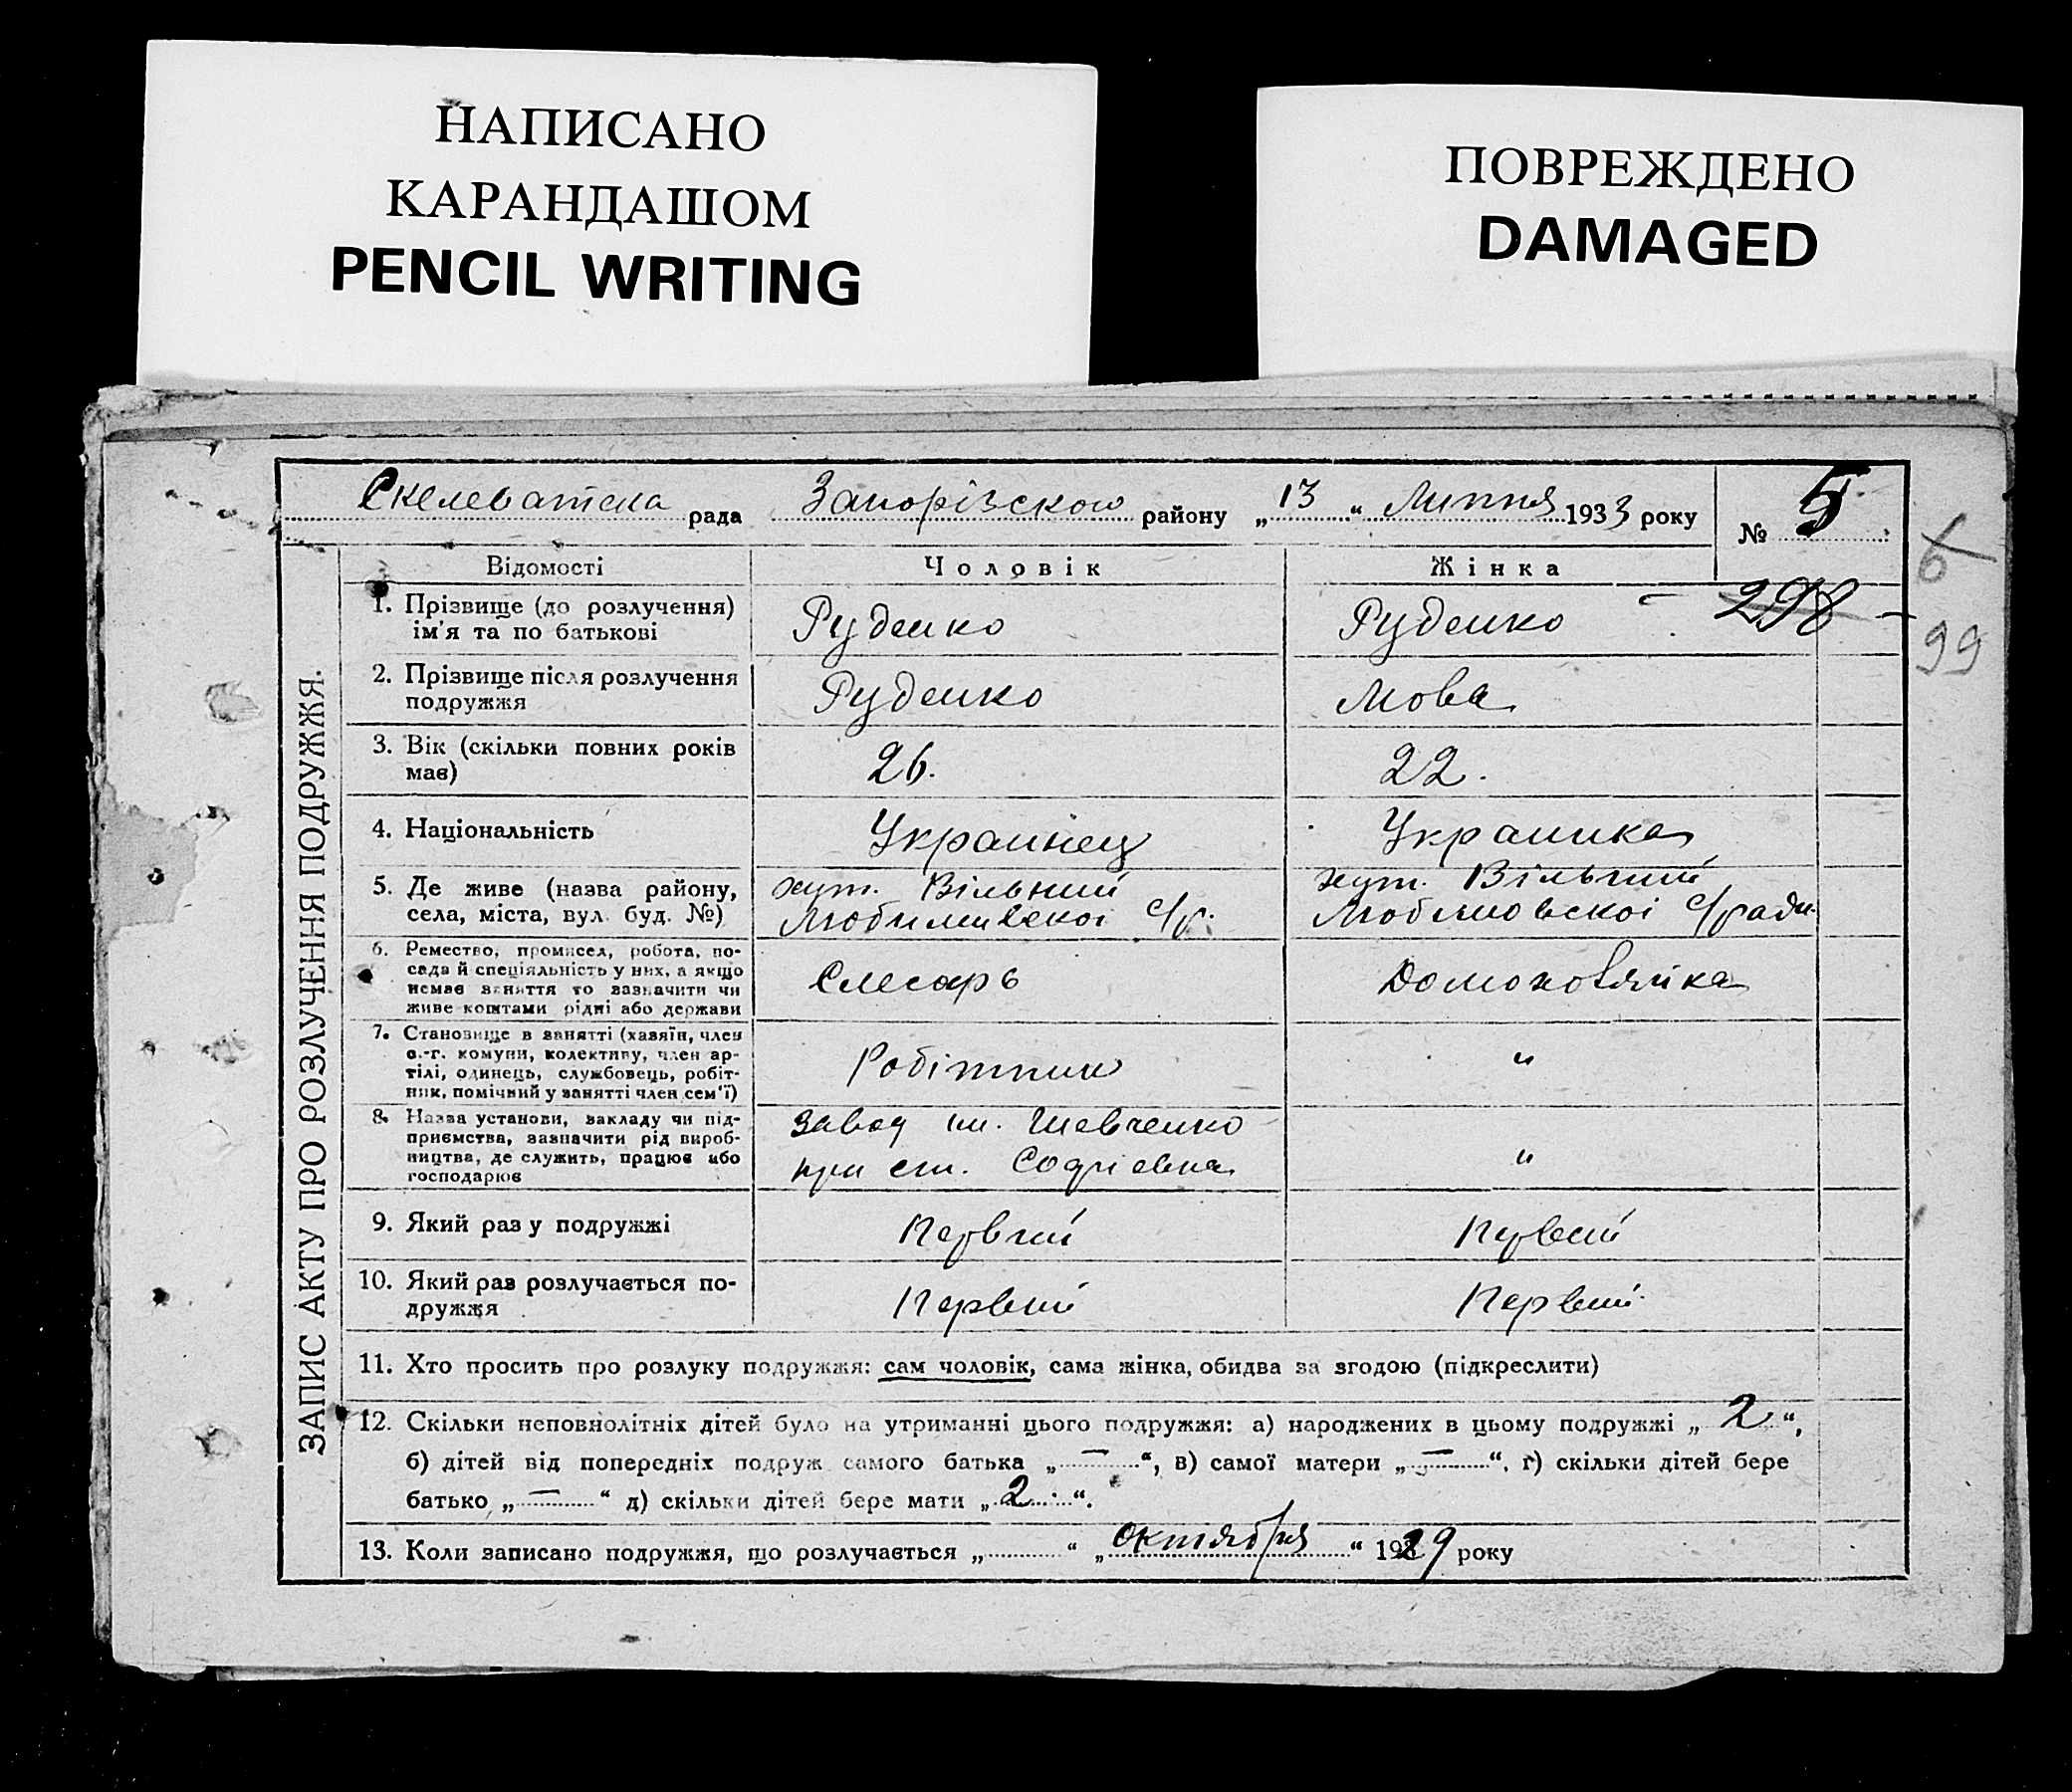 НАПИСАНО
КАРАНДАШОМ
PENCIL WRITING
ПОВРЕЖДЕНО
DAMAGED
Скелеватска рада Запорізского району „13“ Липня 1933 року № 5
6
ЗАПИС АКТУ ПРО РОЗЛУЧЕННЯ ПОДРУЖЖЯ.
Відомості Чоловік Жінка
298
99
1. Прізвище (до розлучення) ім'я та по батькові Руденко Руденко
2. Прізвище після розлучення подружжя Руденко Мова
3. Вік (скільки повних років має) 26. 22.
4. Національність Украинец Украинка
5. Де живе (назва району, хут. Вільний хут. Вільний
села, міста, вул. буд. №) Любимивскоі с/р. Любимовскоі с/ради
6. Ремество, промисел, робота, по-
сада й спеціяльність у них, а якщо Слесарь Домоховяйка
немає заняття то зазначити чи
живе коштами рідні або держави
7. Становище в занятті (хазяїн, член
с.-г. комуни, колективу, член ар-
тілі, одинець, службовець, робіт- Робітник "
ник, помічний у занятті член сем'ї)
8. Назва установи, закладу чи під- завод им. Шевченко
приємства, зазначити рід вироб-
ництва, де служить, працює або при ст. Софиевка "
господарює
9. Який раз у подружжі Первий Первий
10. Який раз розлучається по-
дружжя Первий Первий
11. Хто просить про розлуку подружжя: сам чоловік, сама жінка, обидва за згодою (підкреслити)
12. Скільки неповнолітніх дітей було на утриманні цього подружжя: а) народжених в цьому подружжі „2“,
б) дітей від попередніх подруж самого батька „—“, в) самої матери „—“. г) скільки дітей бере
батько „—“ д) скільки дітей бере мати „2“.
13. Коли записано подружжя, що розлучається „ “ „октября“ 1929 року